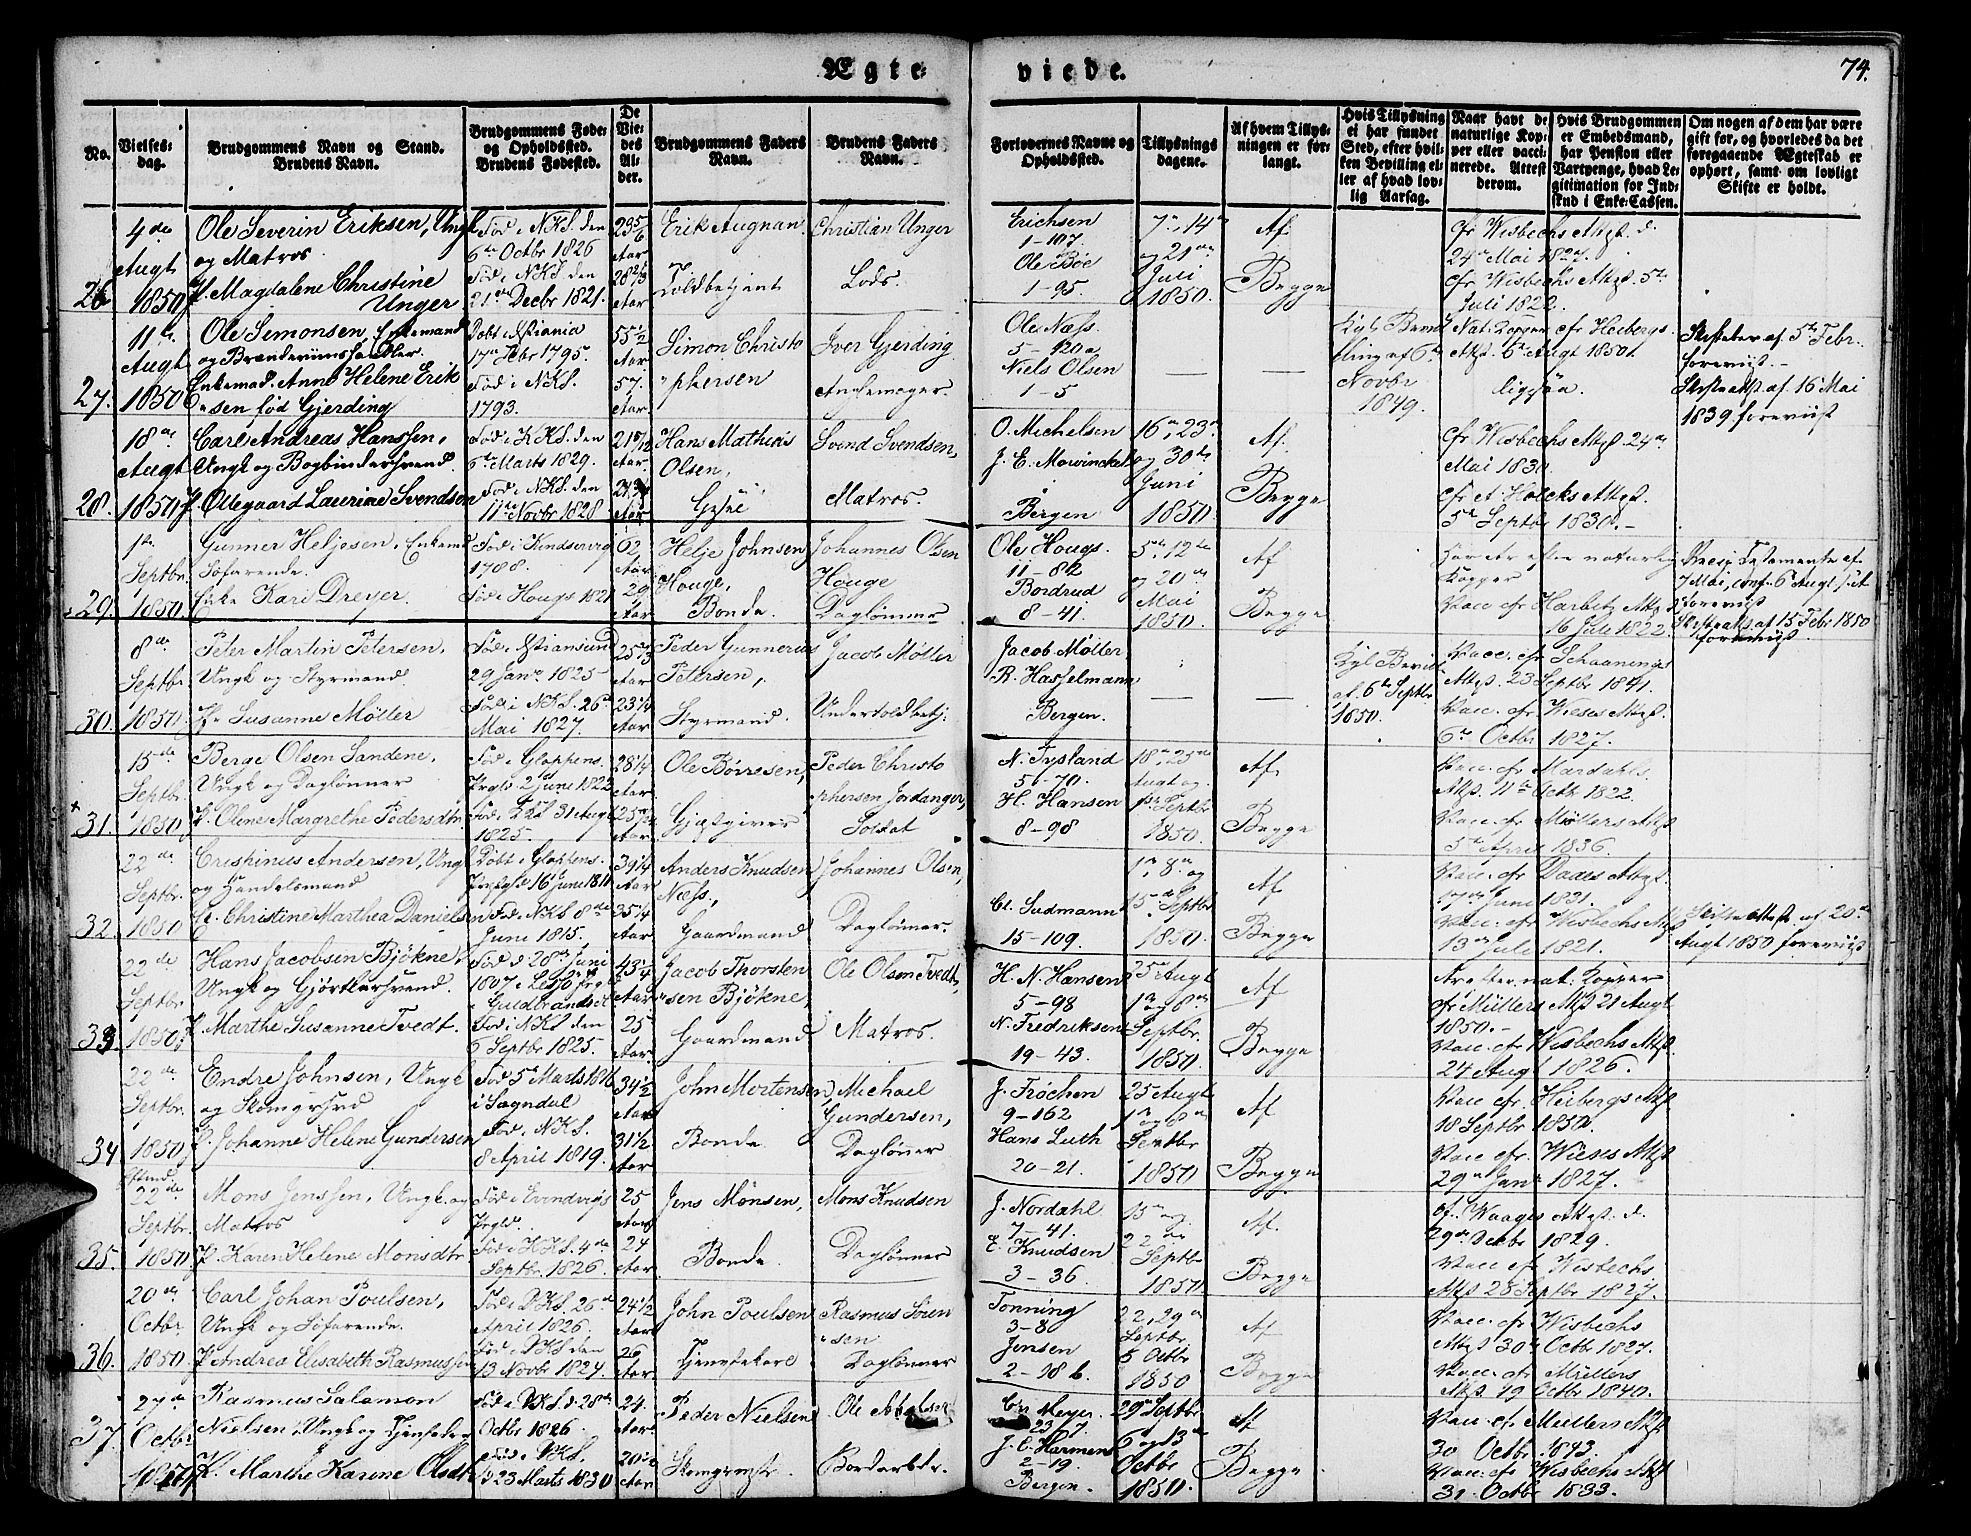 Ægte-
viede.
74.
No.
Vielses-
dag.
Brudgommens Navn og Stand.
Brudens Navn.
Brudgommens Føde-
og Opholdssted.
Brudens Fødested.
De
Vie-
des
Al-
der.
Brudgommens Faders
Navn.
Brudens Faders
Navn.
Forlovernes Navne og
Opholdssted.
Tillysnings
dagene.
Af hvem Tillys-
ningen er for-
langt.
Hvis Tillysning
ei har fundet
Sted, efter hvil-
ken Bevilling el-
ler af hvad lov-
lig Aarsag.
Naar havt de
naturlige Kop-
per eller vacci-
nerede. Attest
derom.
Hvis Brudgommen
er Embedsmand,
har Pension eller
Vartpenge, hvad Le-
gitimation for Ind-
skud i Enke-Cassen.
Om nogen af dem har være
gift før, og hvorledes da det
foregaaende Ægteskab er
ophørt, samt om lovligt
Skifte er holdt.
26
4de
Augt
1850
Ole Severin Eriksen, Ungk
og Matros
P. Magdalene Christine
Unger
Fød i NKS. den
6te Octbr 1826
Fød i NKS. den
21de Decbr 1821.
23 5/6
Aar
28 2/3
Aar
Erik Augnan
Toldbetjent
Christian Unger
Lods.
Erichsen
1-107
Ole Bøe
1-95.
7de, 14de
og 21de
Juli
1850.
Af
Begge
cfr Wisbechs Attest. d.
24de Mai 1827.
cfr Wisbechs Attest. 5te
Juli 1822.
27.
11te
Augt
1850
Ole Simonsen Enkemand
og Brændeviinshandler.
Enkemad. Anne Helene Erik
sen fød Gjerding
Døbt i Xtiania
17de Febr 1795.
Fød i NKS.
1793.
55 1/2
Aar
57.
Aar
Simon Christo
"phersen
Iver Gjerding
Ankermager.
Ole Næss.
5-120a
Niels Olsen
1-5
Kgl. Bevil
ling af 6te
Novbr
1849.
Nat. Kopper cfr Heibergs
Attst. 6te Augt 1850.
ligesaa.
Skifteatt af 5te Febr.
foreviist.-
Skifteattst af 16 Mai
1839 foreviist
28.
18de
Augt
1850
Carl Andreas Hanssen,
Ungk og Bogbindersvend.
P. Ollegaard Laurine Svendsen
Fød i KKS. den
6te Marts 1829.
Fød i NKS. den
11te Novbr 1828
21 5/12
Aar
21 3/4
Aar
Hans Mathias
Olsen,
Svend Svendsen,
Matros.
O. Michelsen
J. E. Mowinckel
Bergen
16de, 23de
og 30te
Juni
1850
Af
Begge
cfr Wisbechs Attst 24de
Mai 1830.
cfr A. Hoecks Attst.
5te Septbr 1830.-
29.
1ste
Septbr
1850
Gunner Heljesen, Enkem.
Søfarende.
Enke Kari Dreyer.
Fød i Kindservig
1788.
Fød i Hougs 1821
62
Aar
29
Aar
Helje Johnsen
Houge,
Bonde
Johannes Olsen
Houge
Daglønner
Ole Hougs.
11-82
Bordrud
8-41.
5te, 12te
og 20de
Mai
1850.
Af
Begge
Kopper
Vacc cfr Harbitz Attst
16 Juli 1822.
foreviist
Skifteatts. af 15 Febr 1850
foreviist.
30.
8de
Septbr
1850
Peter Martin Petersen,
Ungk og Styrmand
Pr Susanne Møller
Fød i Xtiansund
29 Janr 1825
Fød i NKS. 26de
Mai 1827.
25 2/3
Aar
23 1/4
Aar
Peder Gunnerius
Petersen,
Styrmand.
Jacob Møller
Undertoldbetj.
Jacob Møller
R. Hasselmann
Bergen.
Kgl Bevill
af 6te Septbr
1850.
Vacc. cfr Schaanings
Attst. 23 Septbr 1841.
Vacc. cfr Wieses Attst.
6te Octbr 1827.
31.
15de
Septbr
1850
Berge Olsen Sandene,
Ungk og Daglønner
P. Oline Margrethe Pedersdtr
Fød i Gloppens
Prgld. 2 Juni 1822
Fød i DKS 31 Augt
1825.
28 1/4
Aar
25
Aar
Ole Børresen,
Gjæstgiver
Peder Christo
phersen Jordanger,
Soldat
N. Tysland
5-70.
H. Hansen
8-98
18de, 25de
Augt og
1ste Septbr
1850.
Af
Begge
Vacc cfr Mardahls
Attst. 11te Octbr 1822.
Vacc cfr Møllers Attst
5te April 1836.
32.
22de
Septbr
1850
Crispinus Andersen, Ungk
og Handelsmand
E. Christine Marthea Danielsen
Døbt i Gloppens
Prstgld 16 Juni 1811
Fød i NKS 8de
Juni 1815.
39 1/4
Aar
35 1/4
Aar
Anders Knudsen
Næss,
Gaardmand
Johannes Olsen,
Dagløner.
Cl. Sudmann
15-109.
1ste, 8de og
15de Septbr
1850.
Af
Begge
Vacc. cfr Daaes Attst.
17de Juni 1831.
Vacc. cfr Wisbechs Attst
13de Juli 1821.
Skifte Attst af 20de
Augt 1850 foreviist
33
22de
Septbr
1850
Hans Jacobsen Bjøkne,
Ungk og Gjørtlersvend.
P. Marthe Susanne Tvedt.
Fød d 28de Juni
1807 i Lessø Prgld
i Guldbrandsdl
Fød i NKS den
6 Septbr 1825.
43 1/4
Aar
25
Aar
Jacob Thorsten
"sen Bjøkne,
Gaardmand
Ole Olsen Tvedt,
Matros.
H. N. Hansen
5-98
N. Fredriksen
19-43.
25 Augt
1ste og 8de
Septbr
1850
Af
Begge
Arr efter nat. Kopper
cfr Müllers Attst 21 Augt
1850.-
Vacc cfr Wisbechs Attst.
24 Augt 1826.
34
22de
Septbr
1850
Endre Johnsen, Ungk
og Skomgrsvd
P. Johanne Helene Gundersen
Fød 5te Marts 1816
i Sogndal
Fød i NKS.
8 April 1819.
34 1/2
Aar
31 1/2
Aar
John Mortensen
Bonde
Michael
Gundersen,
Dagløner
J. Frøchen
9-162
Hans Luth
20-21.
25 Augt
1ste og 8de
Septbr
1850
Af
Begge
Vacc cfr Heibergs Attst
18 Septbr 1850.
Vacc. cfr. Wieses Attst
29de Janr 1827.
35.
22de
Septbr
1850
Mons Jenssen, Ungk. og
Matros
P. Karen Helene Monsdtr
Fød i Evindvigs
Prgld.
Fød i KKS. 4de
Septbr 1826.
25
Aar
24
Aar
Jens Mønsen,
Bonde.
Mons Knudsen
Dagløner
J. Nordahl
7-41.
E. Knudsen
3-36.
15de og
22de
Septbr
1850
Af.
Begge
cf. Waages Attst. d.
29de Octbr 1829.
Vacc cfr Wisbechs
Attst 28 Septbr 1827.
36.
20de
Octbr
1850
Carl Johan Poulsen,
Ungk og Søfarende.
P Andrea Elisabeth Rasmussen
Fød i DKS. 26de
April 1826.
Fød i DKS den
13 Novbr 1824.
24 1/2
Aar
26
Aar
John Poulsen
Tjenestekarl
Rasmus Sören
"sen
Dagløner
Tonning
3-8
Jensen
2-18 b.
22, 29de
Septbr
5 Octbr
1850
Af
Begge
Vacc. cfr Wisbechs
Attst 30te Octbr 1827.
Vacc. cfr. Müllers
Attst 19 Octbr 1840.
37.
27de
Octbr
Rasmus Salamon
Nielsen, Ungk og Tjenstedr
P. Marthe Karine Olsdtr
Fød i DKS d. 28de
Octbr 1826.
Fød i NKS.
d 23 Marts 1830
24.
Aar
20 1/2
Aar
Peder Nielsen
Skomgrmstr.
Ole
Bordarbdr.
Chr Meyer.
23-7.
J. C. Harmens
2-19.
Bergen.
29de Septbr
6 og 13de
Octbr
1850.
Af
Begge
Vacc. cfr Müllers Attst
30 Octbr 1843.
Vacc. cfr Wisbechs Attst
31. Octbr 1833.